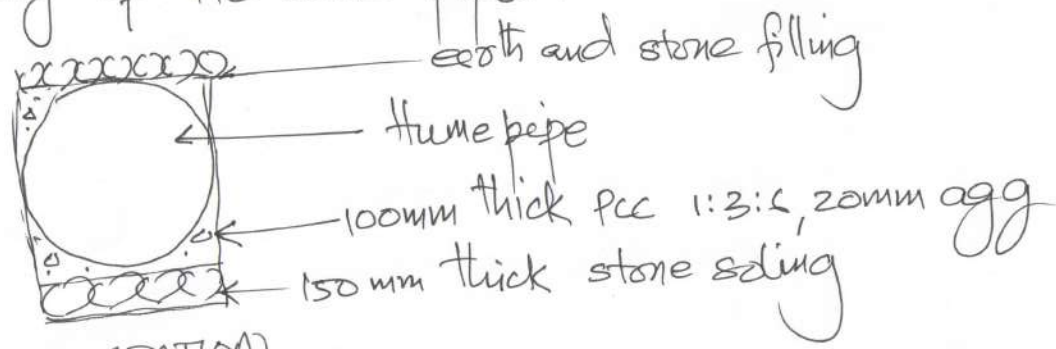 earth and stone filling
Hume pipe
100mm thick PCC 1:3:6, 20mm agg
150 mm thick stone soling